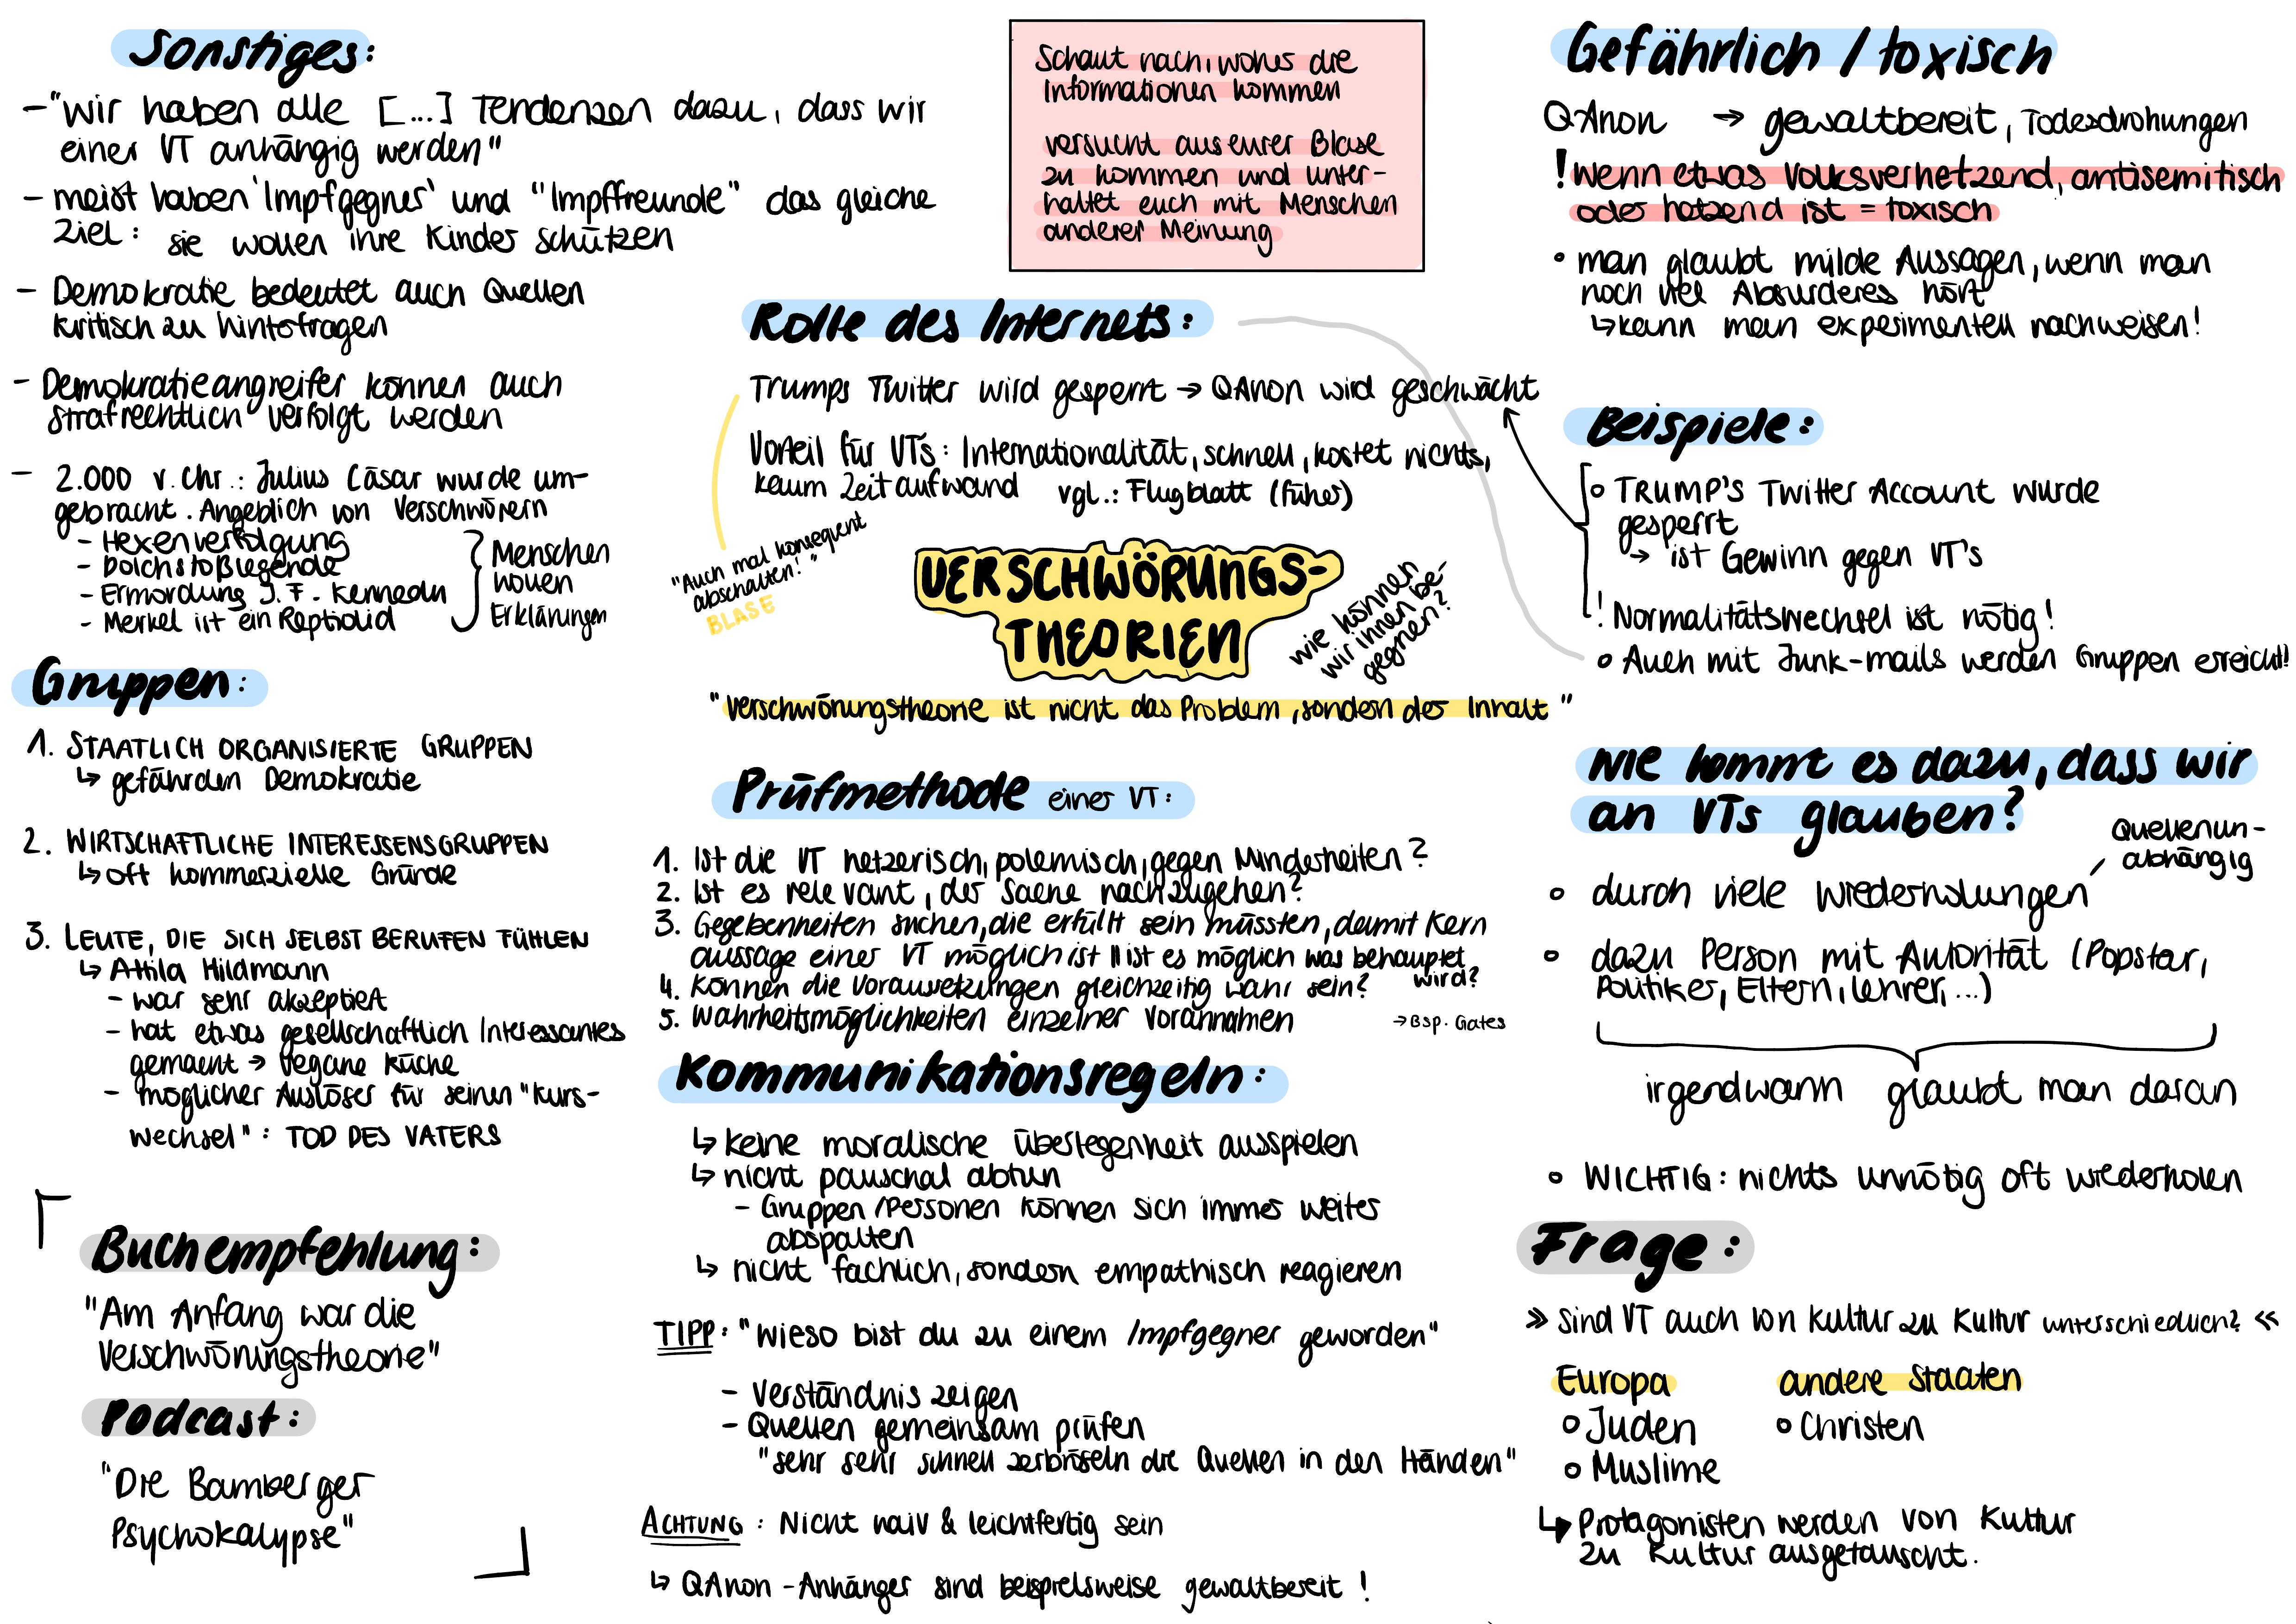 Sonstiges:
- "wir haben alle [...] Tendenzen dazu, dass wir
einer VT anhängig werden"
- meist haben 'Impfgegner' und "Impffreunde" das gleiche
Ziel: sie wollen ihre Kinder schützen
- Demokratie bedeutet auch Quellen
kritisch zu hinterfragen
- Demokratieangreifer können auch
strafrechtlich verfolgt werden
- 2.000 v. Chr.: Julius Cäsar wurde um-
gebracht. Angeblich von Verschwörern
- Hexenverfolgung
- Dolchstoßlegende
- Ermordung J. F. Kennedy
- Merkel ist ein Reptioloid
Menschen
wollen
Erklärungen
Gruppen:
1. STAATLICH ORGANISIERTE GRUPPEN
↳ gefährden Demokratie
2. WIRTSCHAFTLICHE INTERESSENSGRUPPEN
↳ oft kommerzielle Gründe
3. LEUTE, DIE SICH SELBST BERUFEN FÜHLEN
↳ Attila Hildmann
- war sehr akzeptiert
- hat etwas gesellschaftlich Interessantes
gemacht → vegane Küche
- möglicher Auslöser für seinen "Kurs-
wechsel": TOD DES VATERS
Buchempfehlung:
"Am Anfang war die
Verschwörungstheorie"
Podcast:
"Die Bamberger
Psychokalypse"
Schaut nach, woher die
Informationen kommen
versucht aus eurer Blase
zu kommen und unter-
haltet euch mit Menschen
anderer Meinung
Rolle des Internets:
Trumps Twitter wird gesperrt → QAnon wird geschwächt
Vorteil für VTs: Internationalität, schnell, kostet nichts,
kaum Zeitaufwand vgl.: Flugblatt (früher)
"Auch mal konsequent
abschalten!"
BLASE
VERSCHWÖRUNGS-
THEORIEN
wie können
wir ihnen be-
gegnen?
"Verschwörungstheorie ist nicht das Problem, sondern der Inhalt"
Prüfmethode einer VT:
1. Ist die VT hetzerisch, polemisch, gegen Minderheiten?
2. Ist es relevant, der Sache nachzugehen?
3. Gegebenheiten suchen, die erfüllt sein müssten, damit Kern
aussage einer VT möglich ist || ist es möglich was behauptet
wird?
4. Können die Voraussetzungen gleichzeitig wahr sein?
5. Wahrheitsmöglichkeiten einzelner Vorannahmen → Bsp. Gates
Kommunikationsregeln:
↳ keine moralische Überlegenheit ausspielen
↳ nicht pauschal abtun
- Gruppen/Personen können sich immer weiter
abspalten
↳ nicht fachlich, sondern empathisch reagieren
TIPP: "Wieso bist du zu einem Impfgegner geworden"
- Verständnis zeigen
- Quellen gemeinsam prüfen
"sehr sehr schnell zerbröseln die Quellen in den Händen"
ACHTUNG: Nicht naiv & leichtfertig sein
↳ QAnon-Anhänger sind beispielsweise gewaltbereit!
Gefährlich / toxisch
QAnon → gewaltbereit, Todesdrohungen
! Wenn etwas Volksverhetzend, antisemitisch
oder hetzend ist = toxisch
• man glaubt milde Aussagen, wenn man
noch viel Absurderes hört
↳ kann man experimentell nachweisen!
Beispiele:
o TRUMP'S Twitter Account wurde
gesperrt
→ ist Gewinn gegen VT's
! Normalitätswechsel ist nötig!
o Auch mit Junk-mails werden Gruppen erreicht!
Wie kommt es dazu, dass wir
an VTs glauben?
Quellenun-
abhängig
o durch viele Wiederholungen
o dazu Person mit Autorität (Popstar,
Politiker, Eltern, Lehrer, ...)
irgendwann glaubt man daran
o WICHTIG: nichts unnötig oft wiederholen
Frage:
» Sind VT auch von Kultur zu Kultur unterschiedlich? «
Europa
o Juden
o Muslime
andere Staaten
o Christen
↳ Protagonisten werden von Kultur
zu Kultur ausgetauscht.